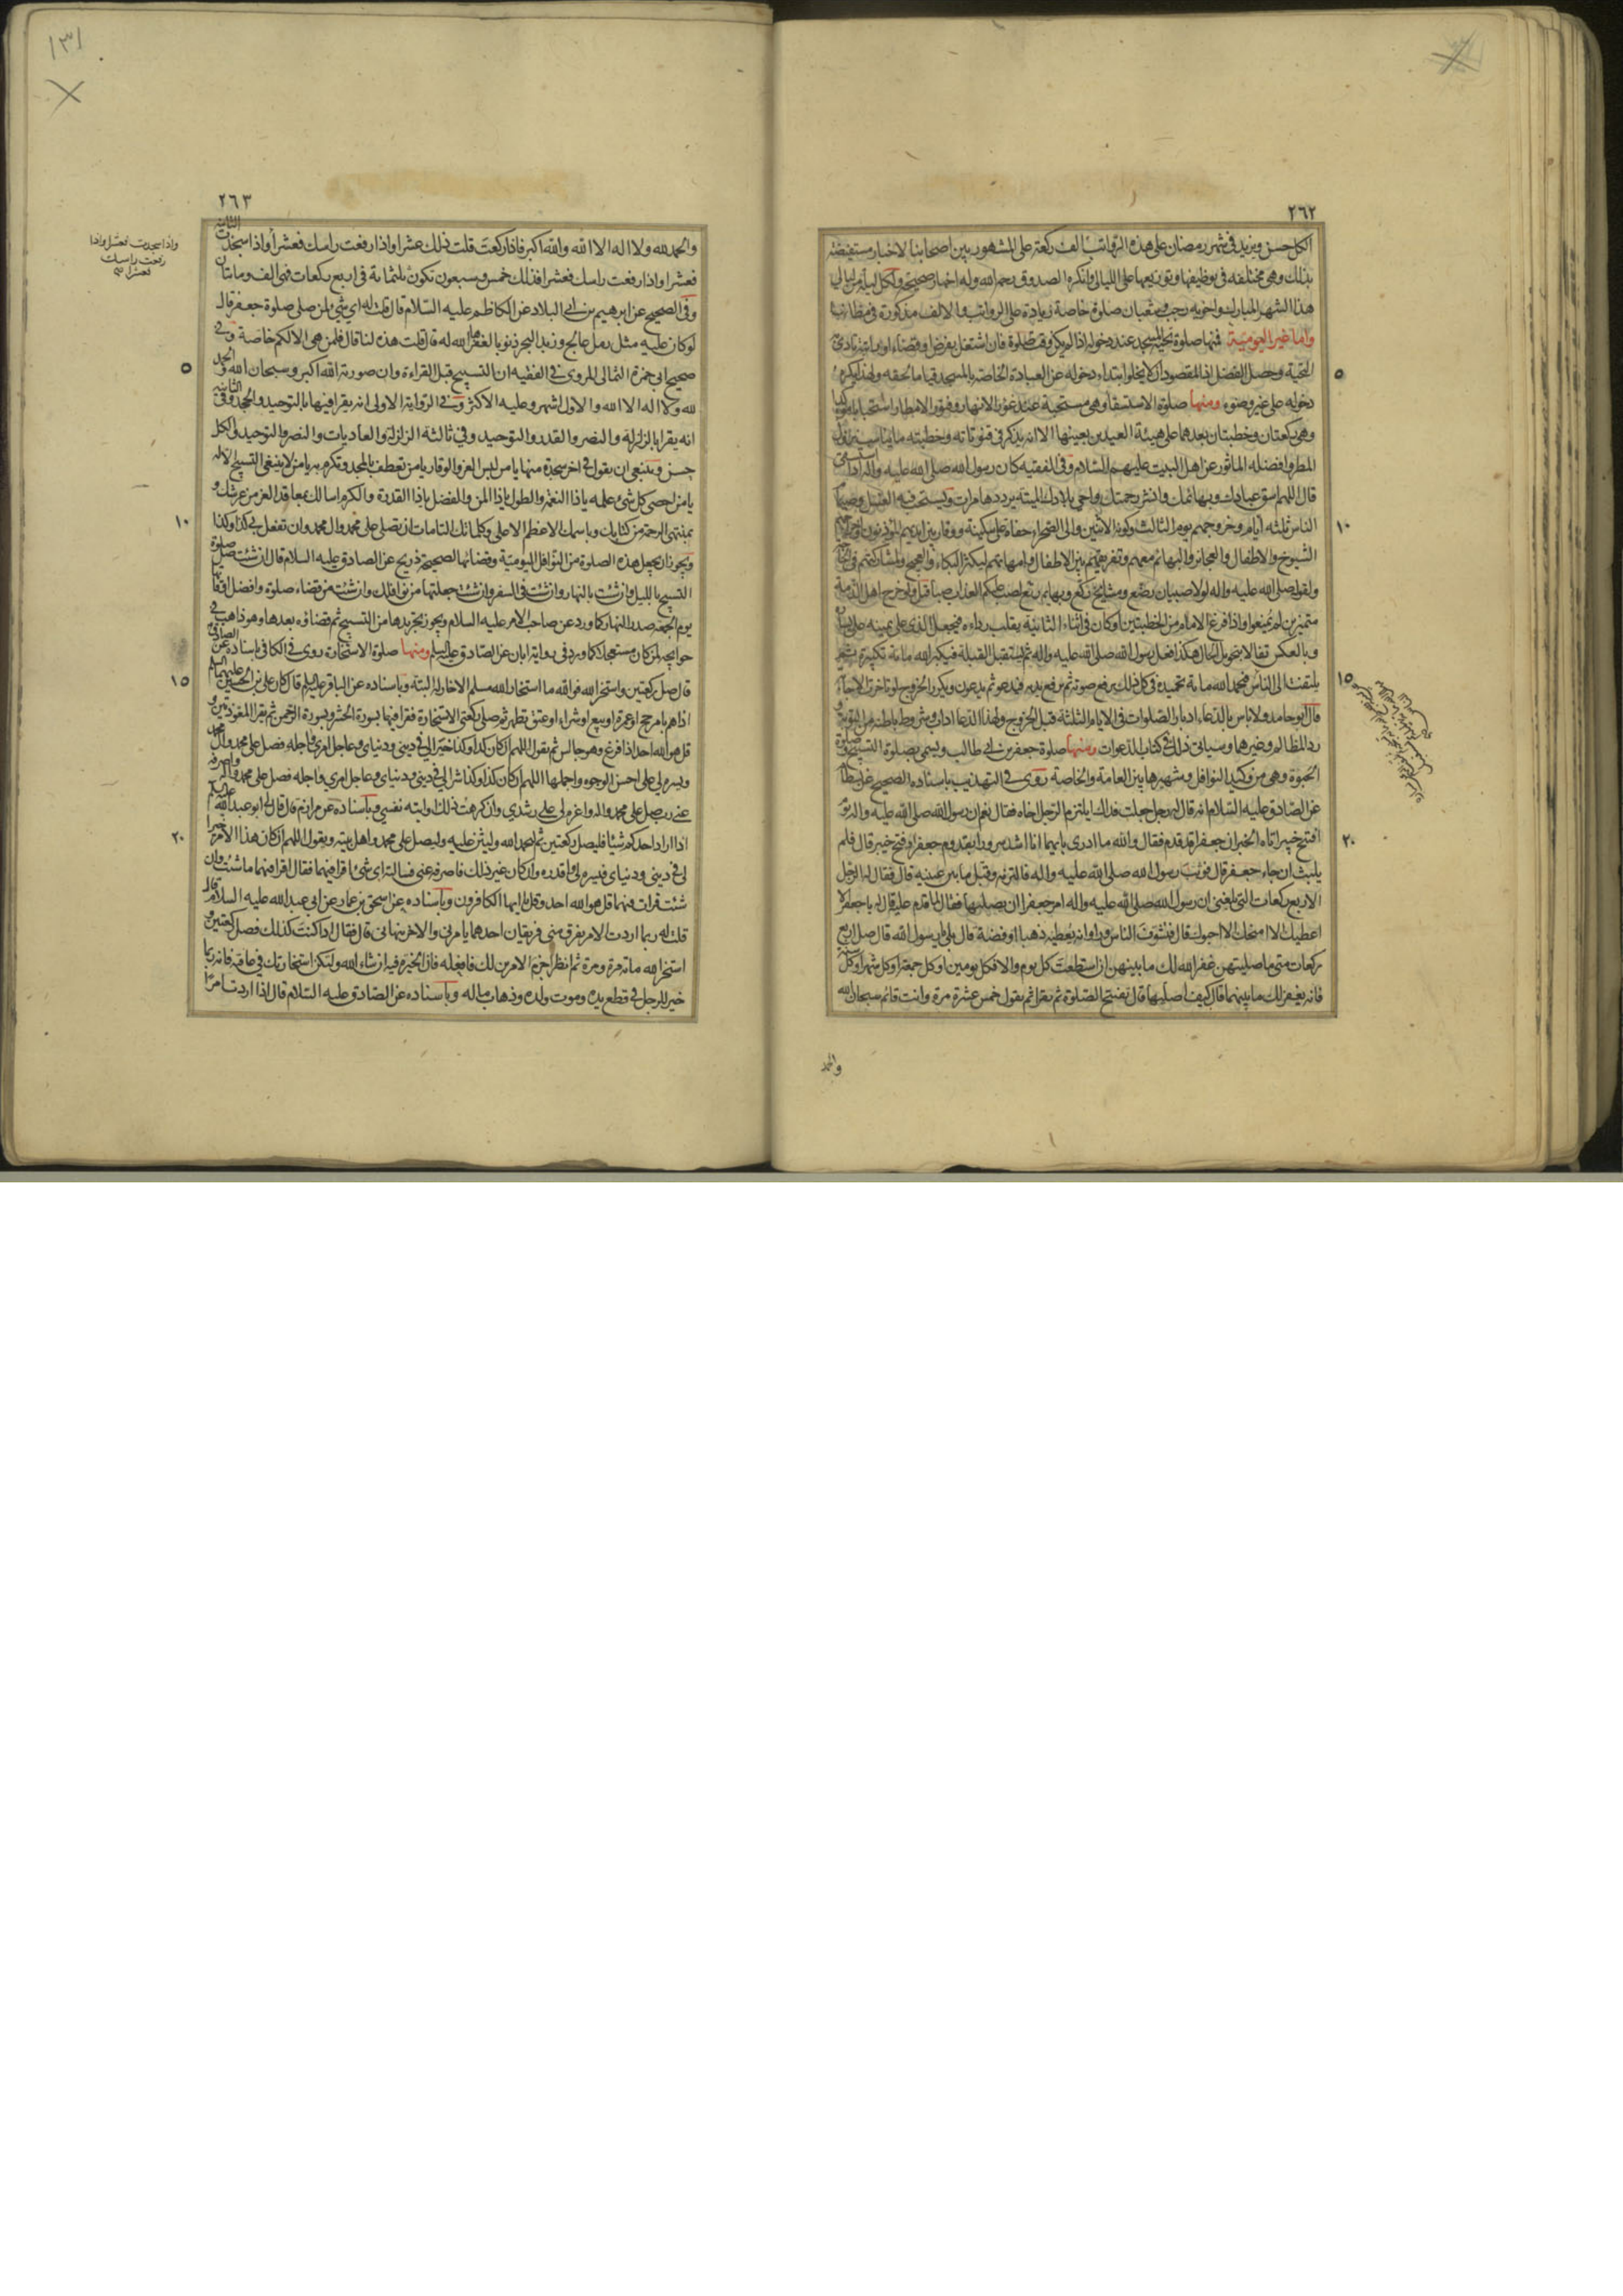 ٢٦٢
الكل حسن ويزيد في شهر رمضان على هذه الرواتب الف ركعة على المشهور بين اصحابنا لاخبار مستفيضة
بذلك وهي مختلفة في توظيفها وتوزيعها على الليالي وانكره الصدوق رحمه الله وله اخبار صحيحة ولكل ليلة من ليالي
هذا الشهر المبارك واخويه رجب وشعبان صلوة خاصة زيادة على الرواتب والالف مذكورة في مظانها
واما غير اليومية فمنها صلوة تحية المسجد عند دخوله اذا لم يكن وقت صلوة فان اشتغل بفرض او قضاء او راتبة تادى
التحية وحصل الفضل اذ المقصود ان لا يخلو ابتداء دخوله عن العبادة الخاصة بالمسجد قياما بحقه ولهذا يكره
دخوله على غير وضوء ومنها صلوة الاستسقا وهي مستحبة عند غور الانهار وفتور الامطار استحبابا مؤكدا
وهي ركعتان وخطبتان بعدهما على هيئة العيدين بعينها الا انه يذكر في قنوتاته وخطبته ما يناسب نزول
المطر وافضله الماثور عن اهل البيت عليهم السلام وفي الفقيه كان رسول الله صلى الله عليه واله اذا استسقى
قال اللهم اسق عبادك وبهائمك وانشر رحمتك واحي بلادك الميتة يرددها مرات ويستحب فيه الغسل وصيام
الناس ثلثة ايام وخروجهم يوم الثالث وكونه الاثنين والى الصحراء حفاة على سكينة ووقار بين ايديهم المؤذنون واخراج
الشيوخ والاطفال والعجائز والبهائم معهم وتفريقهم بين الاطفال وامهاتهم ليكثر البكاء والعجيج ولمشاركتهم في الحاجة
ولقوله صلى الله عليه واله لولا صبيان رضع ومشايخ ركع وبهايم رتع لصب عليكم العذاب صبا قيل ولو خرج اهل الذمة
متميزين لم يمنعوا واذا فرغ الامام من الخطبتين او كان في اثناء الثانية يقلب رداءه فيجعل الذي على يمينه على يساره
وبالعكس تفالا بتحويل الحال هكذا فعل رسول الله صلى الله عليه واله ثم يستقبل القبلة فيكبر الله مائة تكبيرة ثم
يلتفت الى الناس فيحمد الله مائة تحميدة في كل ذلك يرفع صوته ثم يرفع يديه فيدعو ثم يدعون ويكرر الخروج لو تاخرت الاجابة
قال ابو حامد ولا باس بالدعاء ادبار الصلوات في الايام الثلثة قبل الخروج ولهذا الدعا اداب وشروط باطنة من التوبة و
رد المظالم وغيرها وسياتي ذلك في كتاب الدعوات ومنها صلوة جعفر بن ابي طالب ويسمى بصلوة التسبيح وصلوة
الحبوة وهي من وكيد النوافل وشهيرها بين العامة والخاصة روى في التهذيب باسناده الصحيح عن بسطام
عن الصادق عليه السلام انه قال له رجل جعلت فداك ايلتزم الرجل اخاه فقال نعم ان رسول الله صلى الله عليه واله يوم
افتتح خيبر اتاه الخبر ان جعفرا قد قدم فقال والله ما ادري بايهما انا اشد سرورا بقدوم جعفر او فتح خيبر قال فلم
يلبث ان جاء جعفر قال فوثب رسول الله صلى الله عليه واله فالتزمه وقبل ما بين عينيه قال فقال له الرجل
الاربع ركعات التي بلغني ان رسول الله صلى الله عليه واله امر جعفرا ان يصليها فقال لما قدم عليه قال له يا جعفر الا
اعطيك الا امنحك الا احبوك قال فتشوف الناس وراوا انه يعطيه ذهبا او فضة قال بلى يا رسول الله قال صل اربع
ركعات متى ما صليتهن غفر الله لك ما بينهن ان استطعت كل يوم والا فكل يومين او كل جمعة او كل شهر او كل سنة
فانه يغفر لك ما بينهما قال كيف اصليها قال تفتتح الصلوة ثم تقرا ثم تقول خمس عشرة مرة وانت قائم سبحان الله
والحمد
٥
١٠
١٥
٢٠
٢٦٣
١٣١
والحمد لله ولا اله الا الله والله اكبر فاذا ركعت قلت ذلك عشرا واذا رفعت راسك فعشرا واذا سجدت الثانية
فعشرا واذا رفعت راسك فعشرا فذلك خمس وسبعون تكون ثلثمائة في اربع ركعات فهي الف ومايتان
وفي الصحيح عن ابرهيم بن ابي البلاد عن الكاظم عليه السلام قال قلت له اي شي لمن صلى صلوة جعفر قال
لو كان عليه مثل رمل عالج وزبد البحر ذنوبا لغفرها الله له قال قلت هذه لنا قال فلمن هي الا لكم خاصة وفي
صحيح ابي حمزة الثمالي المروي في الفقيه ان التسبيح قبل القراءة وان صورته الله اكبر وسبحان الله والحمد
لله ولا اله الا الله والاول اشهر وعليه الاكثر وفي الرواية الاولى انه يقرا فيها بالتوحيد والجحد وفي الثانية
انه يقرا بالزلزلة والنصر والقدر والتوحيد وفي ثالثة الزلزلة والعاديات والنصر والتوحيد والكل
حسن وينبغي ان يقول في اخر سجدة منها يا من لبس العز والوقار يا من تعطف بالمجد وتكرم به يا من لا ينبغي التسبيح الا له
يا من احصى كل شئ علمه يا ذا النعمة والطول يا ذا المن والفضل يا ذا القدرة والكرم اسالك بمعاقد العز من عرشك و
بمنتهى الرحمة من كتابك وباسمك الاعظم الاعلى وكلماتك التامات ان تصلي على محمد وال محمد وان تفعل بي كذا وكذا
ويجوز ان يجعل هذه الصلوة من النوافل اليومية وقضائها لصحيحة ذريح عن الصادق عليه السلام قال ان شئت صل صلوة
التسبيح بالليل وان شئت بالنهار وان شئت في السفر وان شئت جعلتها من نوافلك وان شئت من قضاء صلوة وافضل اوقاتها
يوم الجمعة صدر النهار كما ورد عن صاحب الامر عليه السلام ويجوز تجريدها من التسبيح ثم قضاؤه بعدها وهو ذاهب في
حوايجه لمن كان مستعجلا كما ورد في رواية ابان عن الصادق عليه السلم ومنها صلوة الاستخارة روى في الكافي باسناده عن الصادق
قال صل ركعتين واستخر الله فوالله ما استخار الله مسلم الا خار له البتة وباسناده عن الباقر عليه السلم قال كان علي بن الحسين عليهما السلم
اذا هم بامر حج او عمرة او بيع او شراء او عتق تطهر ثم صلى ركعتي الاستخارة فقرا فيهما بسورة الحشر وبسورة الرحمن ثم يقرا المعوذتين و
قل هو الله احد اذا فرغ وهو جالس ثم يقول اللهم ان كان كذا وكذا خيرا لي في ديني ودنياي وعاجل امري واجله فصل على محمد وال محمد
ويسره لي على احسن الوجوه واجملها اللهم ان كان كذا وكذا شرا لي في ديني ودنياي وعاجل امري واجله فصل على محمد واله واصرفه
عني رب صل على محمد واله واعزم لي على رشدي وان كرهت ذلك او ابته نفسي وباسناده عن مرازم قال قال لي ابو عبد الله عليه السلم
اذا اراد احدكم شيئا فليصل ركعتين ثم ليحمد الله وليثن عليه وليصل على محمد واهل بيته ويقول اللهم ان كان هذا الامر خيرا
لي في ديني ودنياي فيسره لي واقدره وان كان غير ذلك فاصرفه عني فسالته اي شئ اقرا فيهما فقال اقرا فيهما ما شئت وان
شئت قرات فيهما قل هو الله احد وقل يا ايها الكافرون وباسناده عن اسحق بن عمار عن ابي عبد الله عليه السلام قال
قلت له ربما اردت الامر يفرق مني فريقان احدهما يامرني والاخر ينهاني قال فقال اذا كنت كذلك فصل ركعتين و
استخر الله مائة مرة ومرة ثم انظر احزم الامرين لك فافعله فان الخيرة فيه ان شاء الله ولتكن استخارتك في عافية فانه ربما
خير للرجل في قطع يده وموت ولده وذهاب ماله وباسناده عن الصادق عليه السلام قال اذا اردت امرا
واذا سجدت فعشرا واذا
رفعت راسك
فعشرا صح
٥
١٠
١٥
٢٠